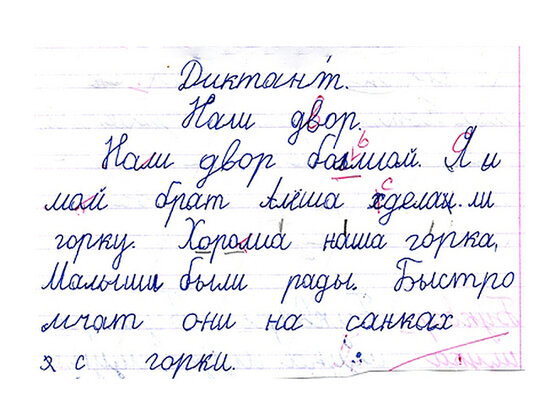 Диктант.
Наш двор.
Наш двор болшой. Я и
мой брат Алёша сделали
горку. Хороша наша горка,
Малыши были рады. Быстро
мчат они на санках
я с горки.